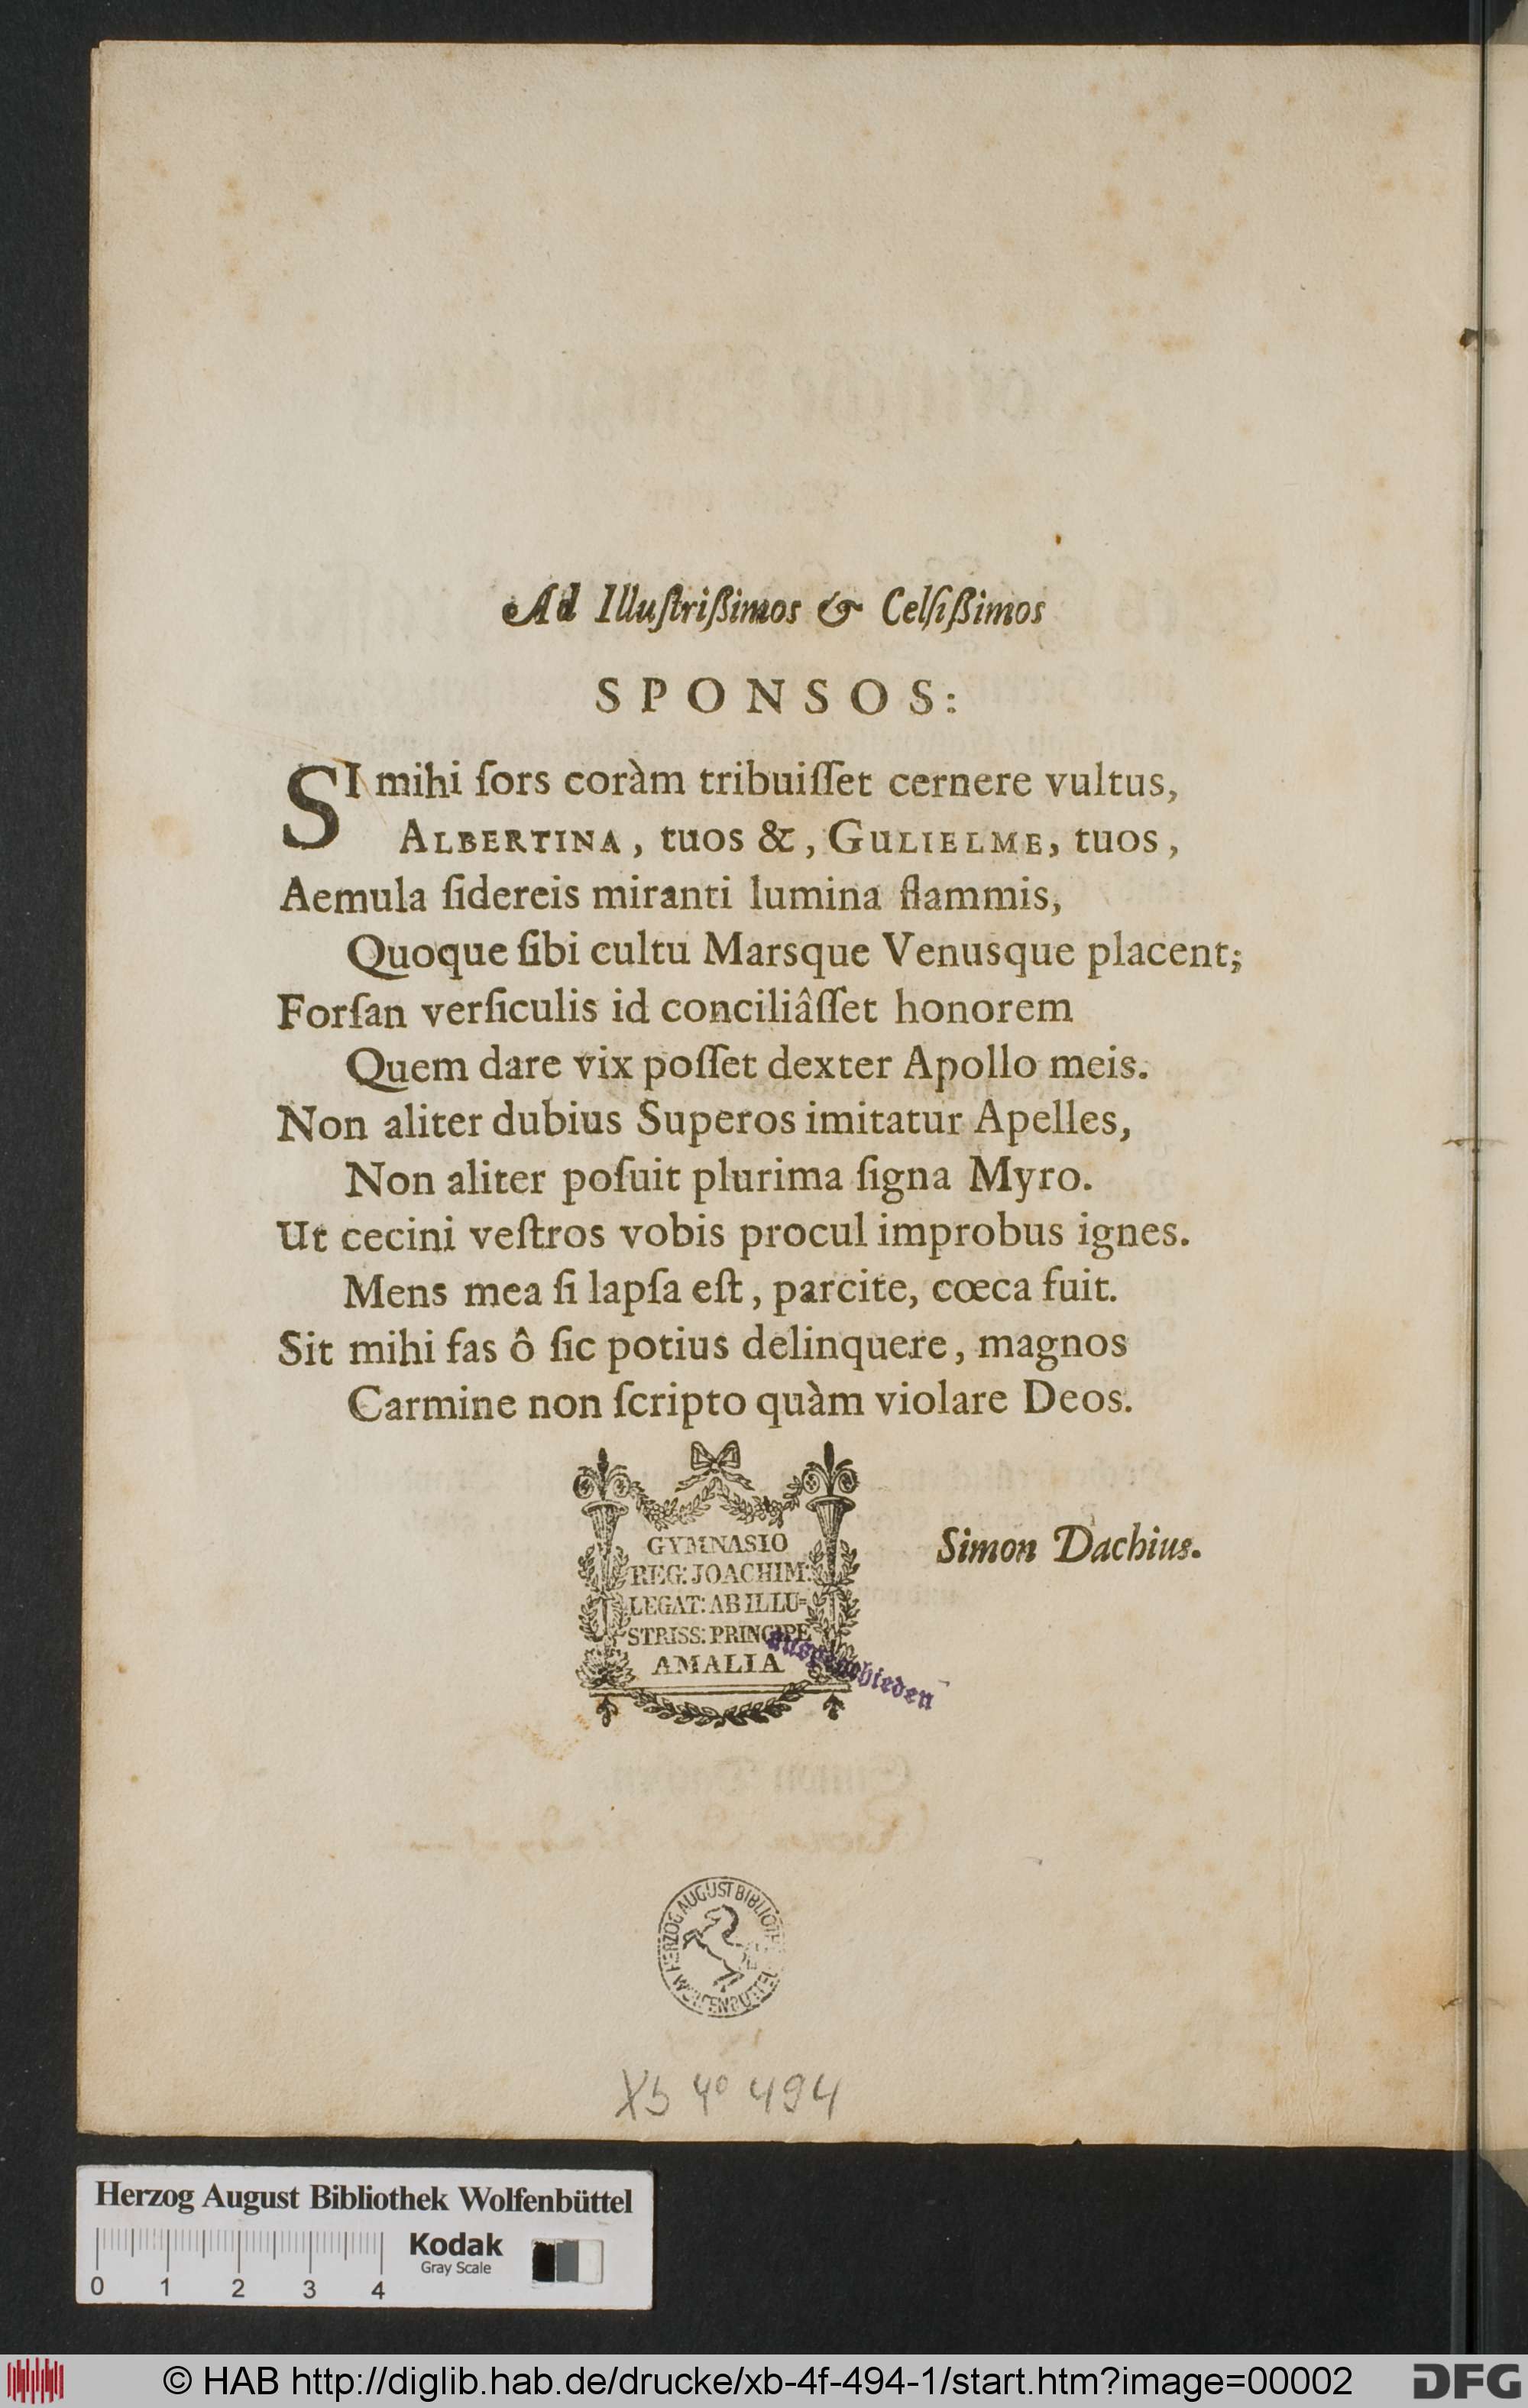 Ad Illuſtrißimos & Celſißimos
SPONSOS:
SI mihi ſors coràm tribuiſſet cernere vultus,
ALBERTINA, tuos &, GULIELME, tuos,
Aemula ſidereis miranti lumina flammis,
Quoque ſibi cultu Marsque Venusque placent;
Forſan verſiculis id conciliâſſet honorem
Quem dare vix poſſet dexter Apollo meis.
Non aliter dubius Superos imitatur Apelles,
Non aliter poſuit plurima ſigna Myro.
Ut cecini veſtros vobis procul improbus ignes.
Mens mea ſi lapſa eſt, parcite, cœca fuit.
Sit mihi fas ô ſic potius delinquere, magnos
Carmine non ſcripto quàm violare Deos.
Simon Dachius.
GYMNASIO
REG: JOACHIM:
LEGAT: AB ILLU=
STRISS: PRINCIPE
AMALIA
ausgeschieden
HERZOG AUGUST BIBLIOTHEK WOLFENBÜTTEL
Xb 4° 494
Herzog August Bibliothek Wolfenbüttel
Kodak
Gray Scale
0 1 2 3 4
© HAB http://diglib.hab.de/drucke/xb-4f-494-1/start.htm?image=00002
DFG